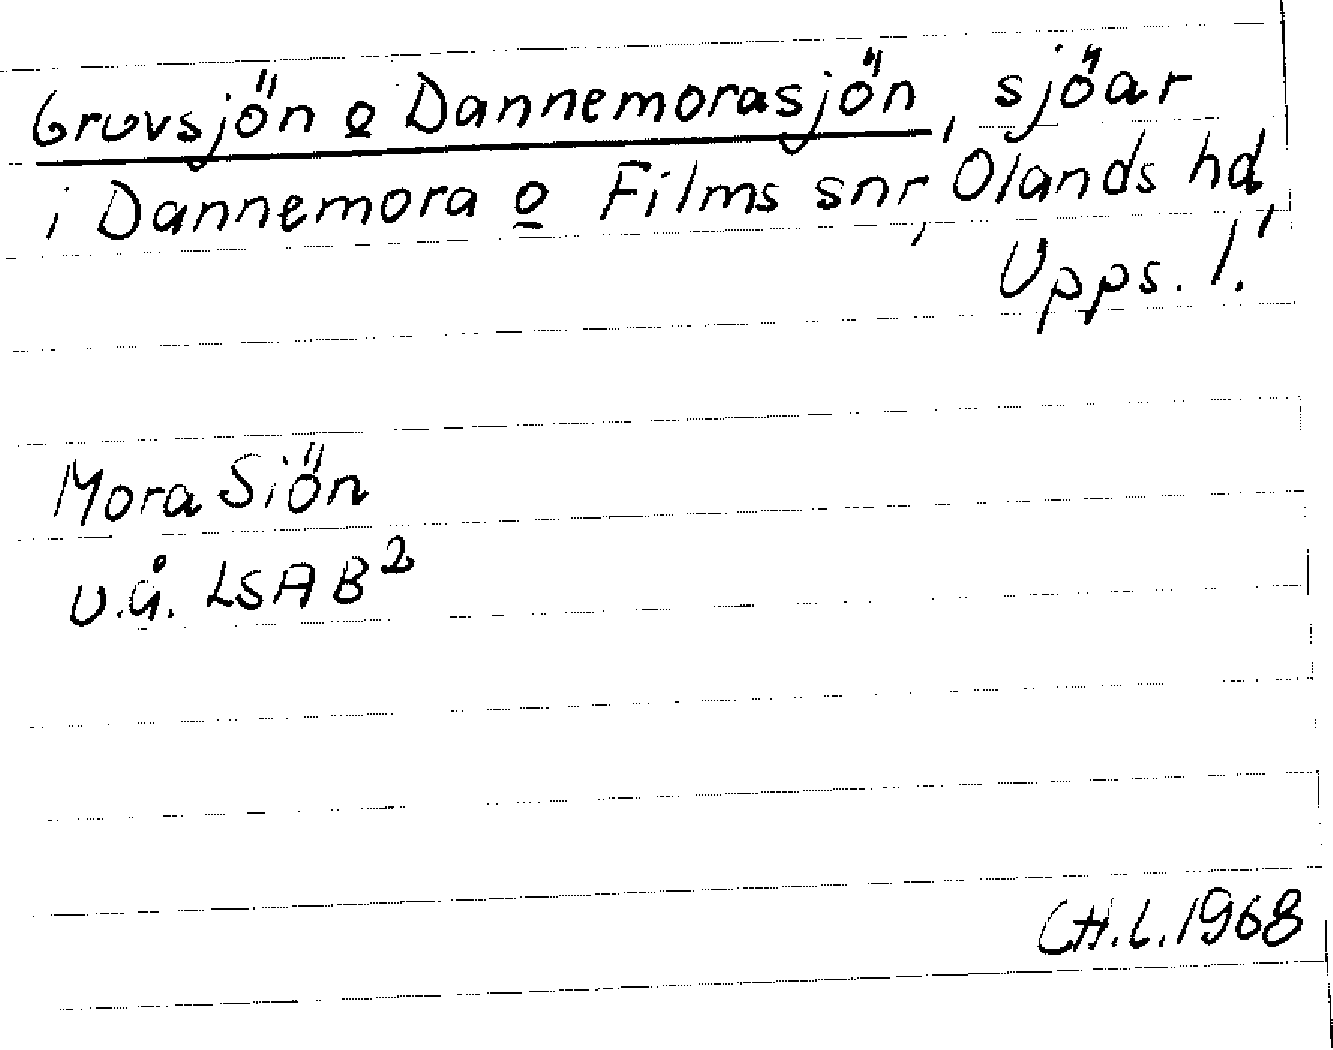 Gruvsjön o Dannemorasjön, sjöar
i Dannemora o Films snr, Olands hd,
Upps. l.
Mora Siön
u.å. LSA B²
C.H.L. 1968